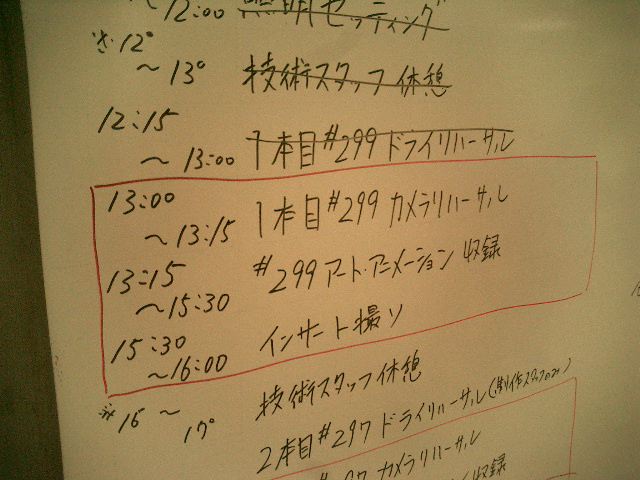 12:00 照明セッティング
12°
～13° 技術スタッフ休憩
12:15
～13:00 1本目#299ドライリハーサル
13:00
～13:15 1本目#299カメラリハーサル
13:15
～15:30 #299アート・アニメーション収録
15:30
～16:00 インサート撮り
※16～
17° 技術スタッフ休憩
2本目#297ドライリハーサル(制作スタッフのみ)
カメラリハーサル
収録